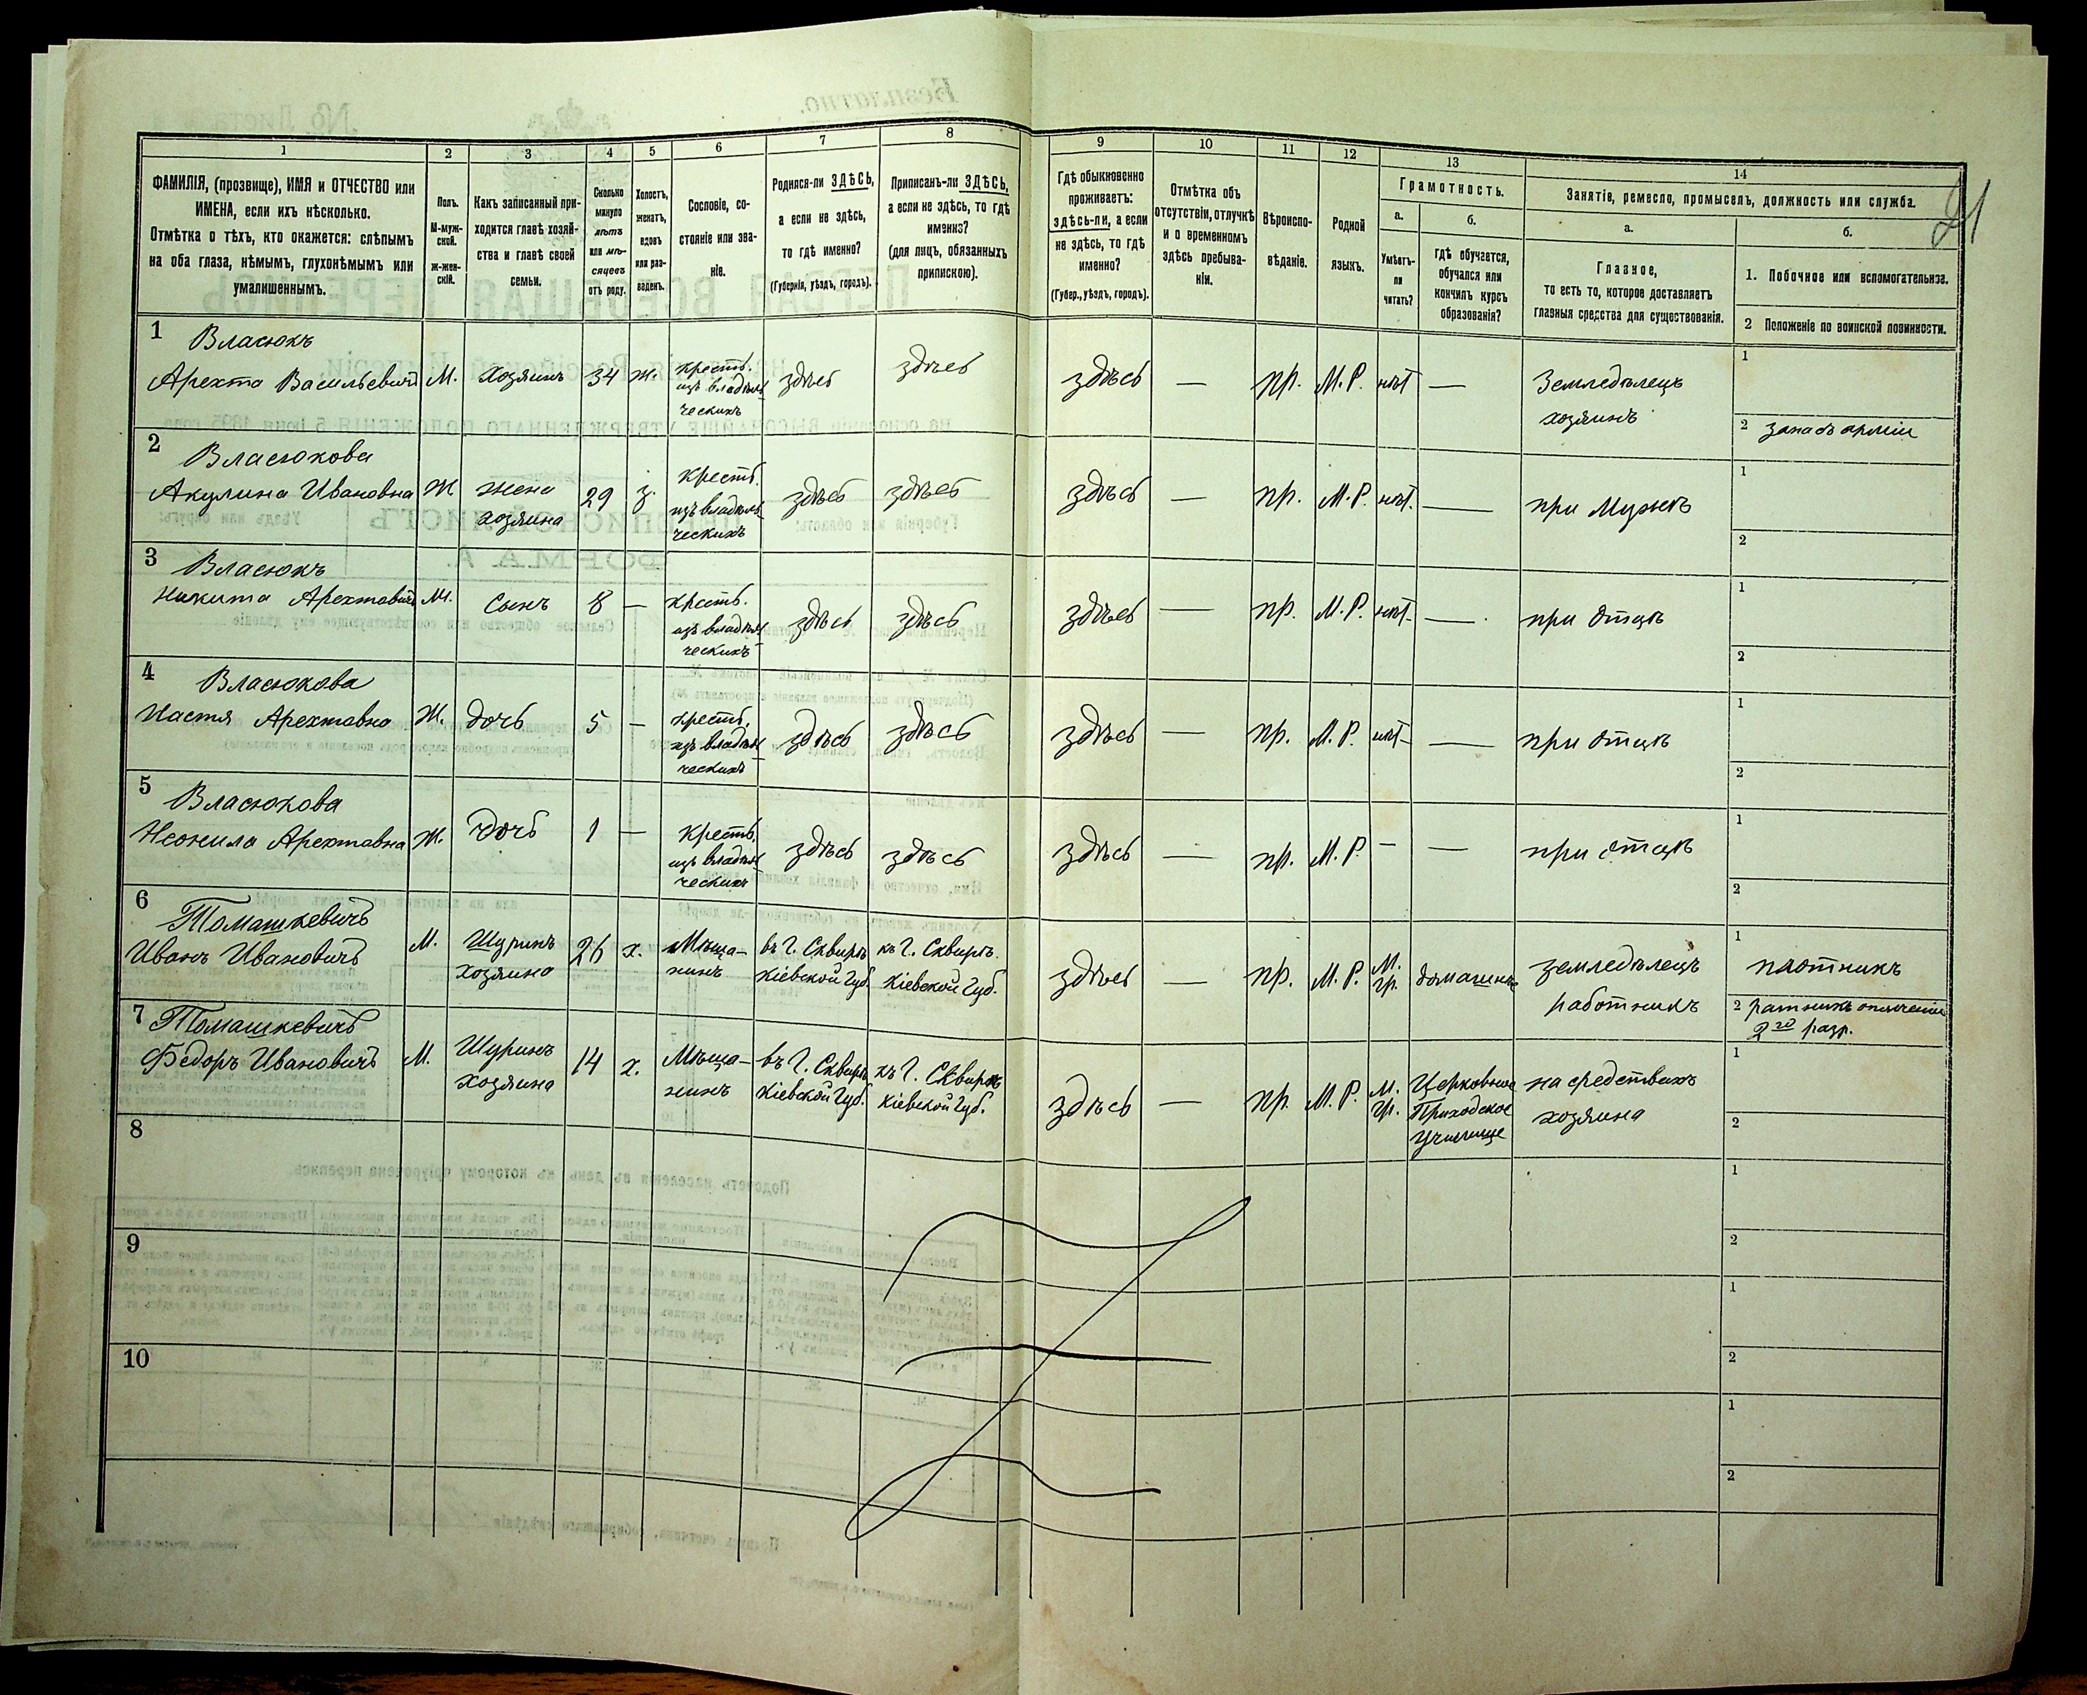 21
1
2
3
4
5
6
7
8
9
10
11
12
13
14
ФАМИЛІЯ, (прозвище), ИМЯ и ОТЧЕСТВО или
ИМЕНА, если ихъ нѣсколько.
Отмѣтка о тѣхъ, кто окажется: слѣпымъ
на оба глаза, нѣмымъ, глухонѣмымъ или
умалишеннымъ.
Полъ.
М-муж-
ской.
Ж-жен-
скій.
Какъ записанный при-
ходится главѣ хозяй-
ства и главѣ своей
семьи.
Сколько
минуло
лѣтъ
или мѣ-
сяцевъ
отъ роду.
Холостъ,
женатъ,
вдовъ
или раз-
веденъ.
Сословіе, со-
стояніе или зва-
ніе.
Родился-ли ЗДѢСЬ,
а если не здѣсь,
то гдѣ именно?
(Губернія, уѣздъ, городъ).
Приписанъ-ли ЗДѢСЬ,
а если не здѣсь, то гдѣ
именно?
(для лицъ, обязанныхъ
припискою).
Гдѣ обыкновенно
проживаетъ:
здѣсь-ли, а если
не здѣсь, то гдѣ
именно?
(Губер., уѣздъ, городъ).
Отмѣтка объ
отсутствіи, отлучкѣ
и о временномъ
здѣсь пребыва-
ніи.
Вѣроиспо-
вѣданіе.
Родной
языкъ.
Грамотность.
а.
Умѣетъ-
ли
читать?
б.
Гдѣ обучается,
обучался или
кончилъ курсъ
образованія?
Занятіе, ремесло, промыселъ, должность или служба.
а.
Главное,
то есть то, которое доставляетъ
главныя средства для существованія.
б.
1. Побочное или вспомогательное.
2 Положеніе по воинской повинности.
1
Власюкъ
Арехта Васильевичъ
М.
хозяинъ
34
ж.
крестъ.
изъ владѣль
ческихъ
здѣсь
здѣсь
здѣсь
—
пр.
М.Р.
нѣт
—
Земледѣлецъ
хозяинъ
1
2 запасъ арміи
2
Власюкова
Акулина Ивановна
Ж
жена
хозяина
29
з.
крестъ.
изъ владѣль
ческихъ
здѣсь
здѣсь
здѣсь
—
пр.
М.Р.
нѣт.
—
при Мужѣ
1
2
3
Власюкъ
Никита Арехтавичъ
М.
Сынъ
8
—
крестъ.
изъ владѣль
ческихъ
здѣсь
здѣсь
здѣсь
—
пр.
М.Р.
нѣт
—
при отцѣ
1
2
4
Власюкова
Настя Арехтавна
Ж.
дочь
5
—
крестъ.
изъ владѣль
ческихъ
здѣсь
здѣсь
здѣсь
—
пр.
М.Р.
нѣт
—
при отцѣ
1
2
5
Власюкова
Неонила Арехтавна
Ж.
дочь
1
—
крестъ.
изъ владѣль
ческихъ
здѣсь
здѣсь
здѣсь
—
пр.
М.Р.
—
—
при отцѣ
1
2
6
Томашкевичъ
Иванъ Ивановичъ
М.
Шуринъ
хозяина
26
х.
Мѣща-
нинъ
въ Г. Сквирѣ
Кіевской Губ.
къ Г. Сквирѣ.
Кіевской Губ.
здѣсь
—
пр.
М.Р.
М.
гр.
домашнѣ
земледѣлецъ
работникъ
1
плотникъ
2 ратникъ ополченія
2го разр.
7
Томашкевичъ
Ѳедоръ Ивановичъ
М.
Шуринъ
хозяина
14
х.
Мѣща-
нинъ
въ Г. Сквирѣ
Кіевской Губ.
къ Г. Сквирѣ
Кіевской Губ.
здѣсь
—
пр.
М.Р.
М.
гр.
Церковное
Приходское
Училище
на средствахъ
хозяина
1
2
8
1
2
9
1
2
10
1
2